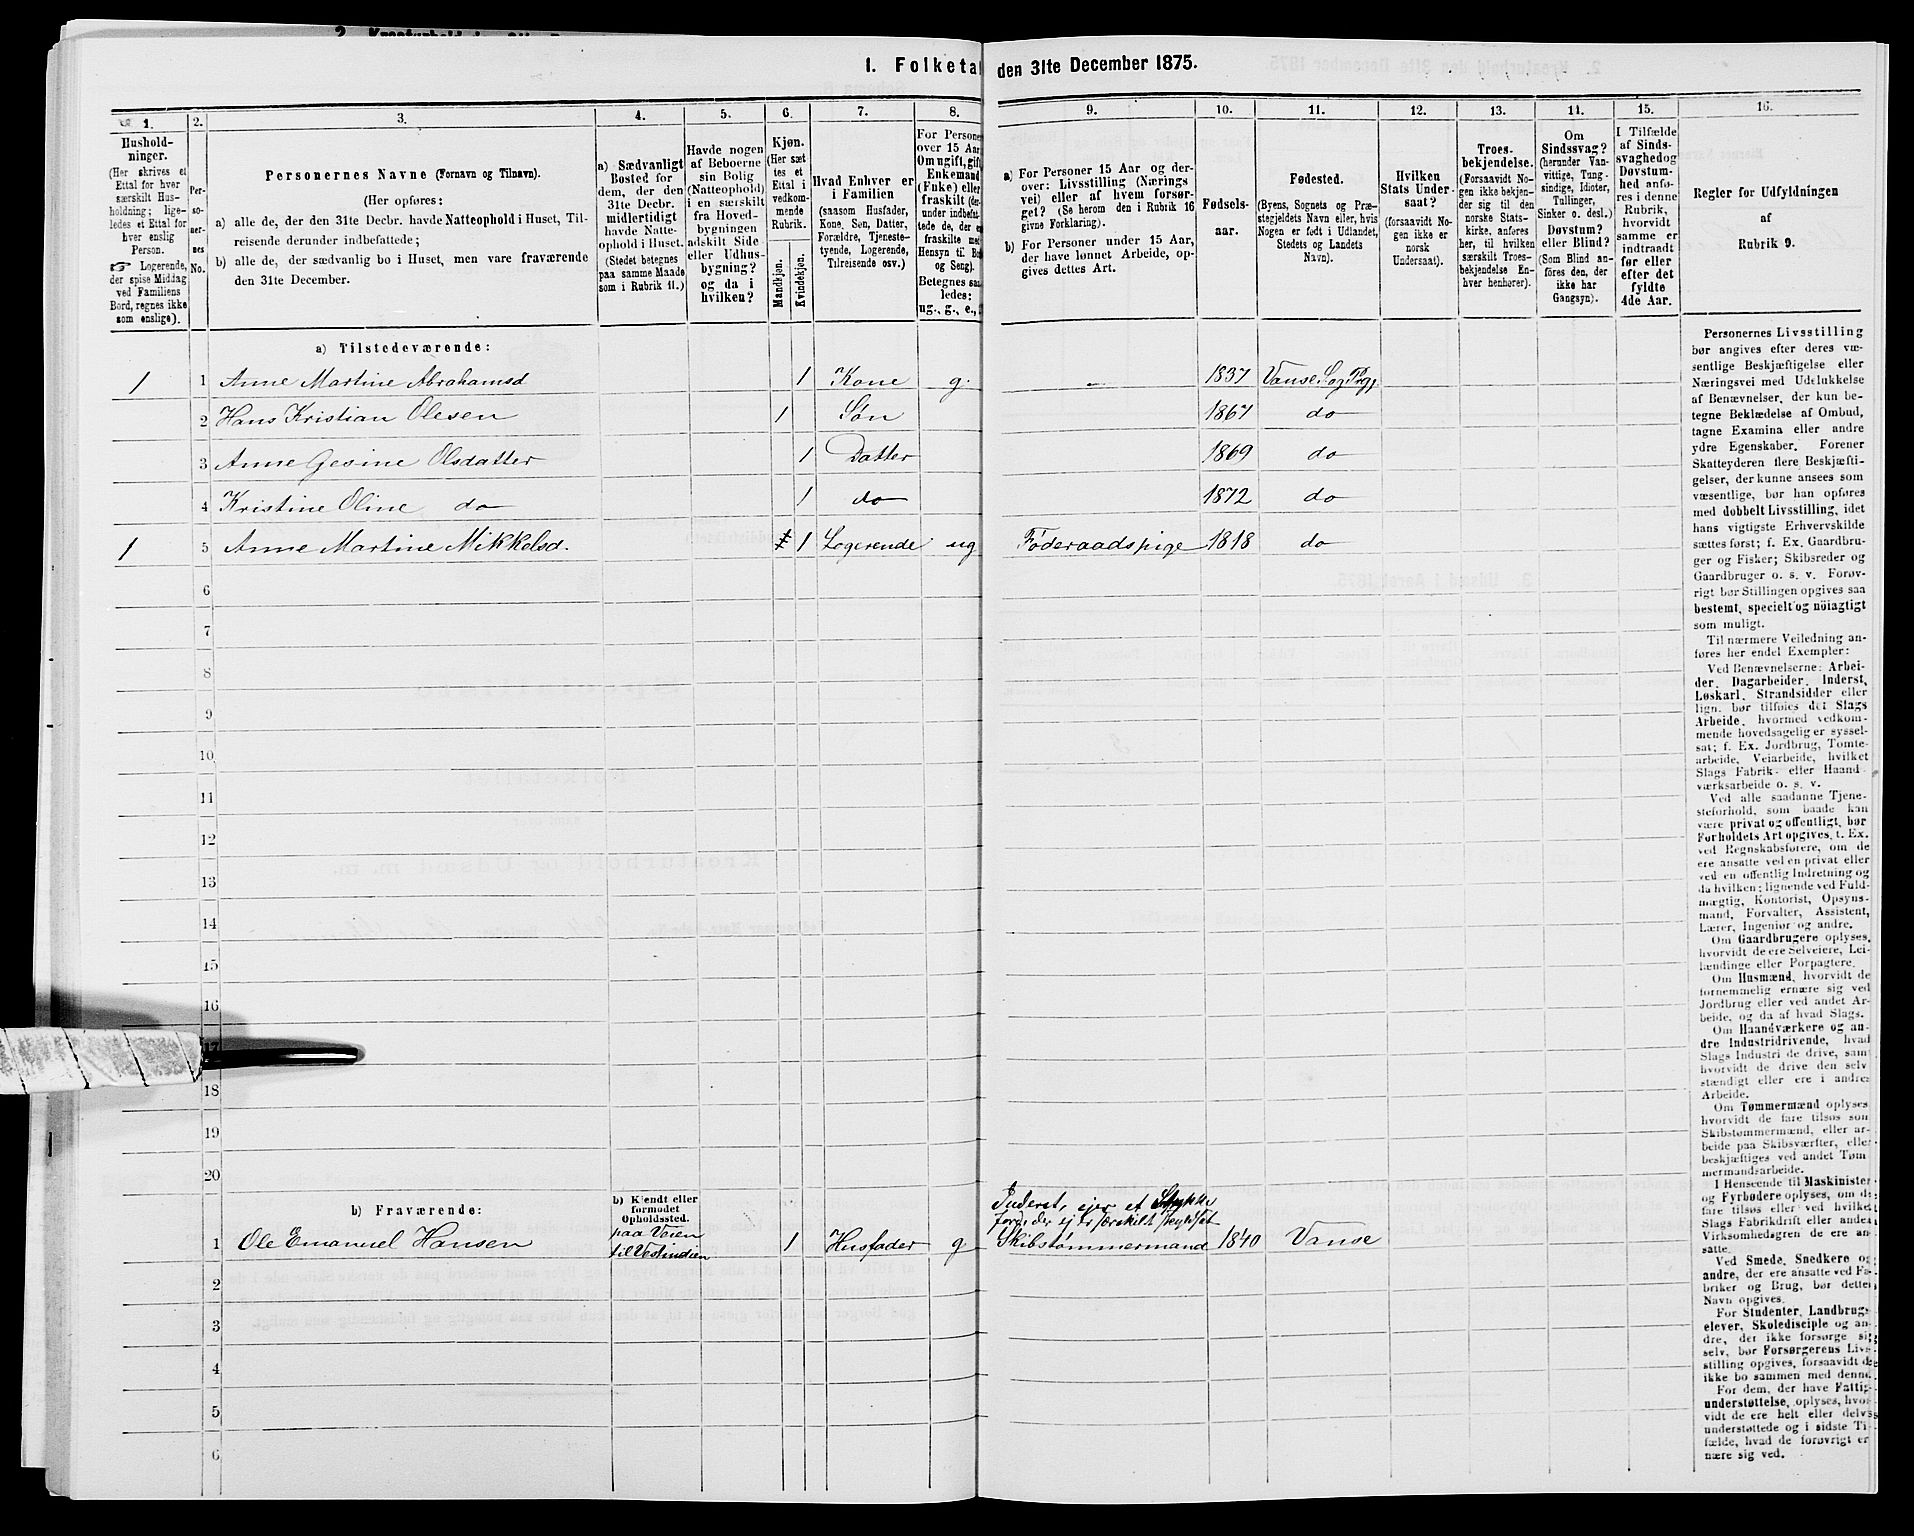 1. Folketal den 31te December 1875.
1. 2. 3. 4. 5. 6. 7. 8. 9. 10. 11. 12. 13. 14. 15. 16.
Hushold-
ninger.
(Her skrives et
Ettal for hver
særskilt Hus-
holdning; lige-
ledes et Ettal for
hver enslig
Person.
☞ Logerende,
der spise Middag
ved Familiens
Bord, regnes ikke
som enslige).
Per-
so-
ner-
nes
No.
Personernes Navne (Fornavn og Tilnavn).
(Her opføres:
a) alle de, der den 31te Decbr. havde Natteophold i Huset, Til-
reisende derunder indbefattede;
b) alle de, der sædvanlig bo i Huset, men vare fraværende
den 31te December.
a) Sædvanligt
Bosted for
dem, der den
31te Decbr.
midlertidigt
havde Natte-
ophold i Huset.
(Stedet betegnes
paa samme Maade
som i Rubrik 11.)
Havde nogen
af Beboerne
sin Bolig
(Natteophold)
i en særskilt
fra Hoved-
bygningen
adskilt Side-
eller Udhus-
bygning?
og da i
hvilken?
Kjøn.
(Her sæt-
tes et
Ettal i
vedkom-
mende
Rubrik.
Mandkjøn.
Kvindekjøn.
Hvad Enhver er
i Familien
(saasom Husfader,
Kone, Søn, Datter,
Forældre, Tjeneste-
tyende, Logerende,
Tilreisende osv.)
For Personer
over 15 Aar
Om ugift, gift,
Enkemand
(Enke) eller
fraskilt (der-
under indbefat-
tede de, der ere
fraskilte med
Hensyn til Bord
og Seng).
Betegnes saa-
ledes:
ug., g., e.,
a) For Personer 15 Aar og der-
over: Livsstilling (Nærings
vei) eller af hvem forsør-
get? (Se herom den i Rubrik 16
givne Forklaring).
b) For Personer under 15 Aar,
der have lønnet Arbeide, op-
gives dettes Art.
Fødsels-
aar.
Fødested.
(Byens, Sognets og Præ-
stegjeldets Navn eller, hvis
Nogen er født i Udlandet,
Stedets og Landets
Navn).
Hvilken
Stats Under-
saat?
(forsaavidt No-
gen ikke er
norsk
Undersaat).
Troes-
bekjendelse.
(Forsaavidt No-
gen ikke bekjen-
der sig til den
norske Stats-
kirke, anføres
her, til hvilken
særskilt Troes-
bekjendelse En-
hver henhører).
Om
Sindssvag?
(herunder Van-
vittige, Tung-
sindige, Idioter,
Tullinger,
Sinker o. desl.)
Døvstum?
eller Blind?
(Som Blind an-
føres den, der
ikke har
Gangsyn).
I Tilfælde
af Sinds-
svaghed og
Døvstum-
hed anfø-
res i denne
Rubrik,
hvorvidt
samme er
indtraadt
før eller
efter det
fyldte
4de Aar.
Regler for Udfyldningen
af
Rubrik 9.
a) Tilstedeværende:
1 1 Anne Martine Abrahamsd 1 Kone g. 1837 Vanse S. og Prg,
2 Hans Kristian Olesen 1 Søn 1867 do
3 Anne Gesine Olsdatter 1 Datter 1869 do
4 Kristine Oline do 1 do 1872 do
1 5 Anne Martine Mikkelsd. 1 Logerende ug Føderaadspige 1818 do
6
7
8
9
10
11
12
13
14
15
16
17
18
19
20
b) Fraværende:
b) Kjendt eller
formodet
Opholdssted.
Inderst, ejer et Stykke
Jord, der ej er særskilt skyldsat
1 Ole Emanuel Hansen paa Veien til Vestindien 1 Husfader g. Skibstømmermand 1840 Vanse
2
3
4
5
6
Personernes Livsstilling
bør angives efter deres væ-
sentlige Beskjæftigelse eller
Næringsvei med Udelukkelse
af Benævnelser, der kun be-
tegne Beklædelse af Ombud,
tagne Examina eller andre
ydre Egenskaber. Forener
Skatteyderen flere Beskjæfti-
gelser, der kunne ansees som
væsentlige, bør han opføres
med dobbelt Livsstilling, idet
hans vigtigste Erhvervskilde
sættes først; f. Ex. Gaardbru-
ger og Fisker; Skibsreder og
Gaardbruger o. s. v. Forøv-
rigt bør Stillingen opgives saa
bestemt, specielt og nöiagtigt
som muligt.
Til nærmere Veiledning an-
føres her endel Exempler:
Ved Benævnelserne: Arbei-
der, Dagarbeider, Inderst,
Løskarl, Strandsidder eller
lign. bør tilføies det Slags
Arbeide, hvormed vedkom-
mende hovedsagelig er syssel-
sat; f. Ex. Jordbrug, Tomte-
arbeide, Veiarbeide, hvilket
Slags Fabrik- eller Haand-
værksarbeide o. s. v.
Ved alle saadanne Tjene-
steforhold, som baade kan
være privat og offentligt, bør
Forholdets Art opgives, t. Ex.
ved Regnskabsførere, om de
ere ansatte ved en privat eller
ved en offentlig Indretning og
da hvilken; lignende ved Fuld-
mægtig, Kontorist, Opsyns-
mand, Forvalter, Assistent,
Lærer, Ingeniør og andre.
Om Gaardbrugere oplyses,
hvorvidt de ere Selveiere, Lei-
lændinge eller Forpagtere.
Om Husmænd, hvorvidt de
fornemmelig ernære sig ved
Jordbrug eller ved andet Ar-
beide, og da af hvad Slags.
Om Haandværkere og an-
dre Industridrivende, hvad
Slags Industri de drive, samt
hvorvidt de drive den selv-
stændigt eller ere i andres
Arbeide.
Om Tømmermænd oplyses
hvorvidt de fare tilsøs som
Skibstømmermænd, eller ar-
beide paa Skibsværfter, eller
beskjæftiges ved andet Tøm-
mermandsarbeide.
I Henseende til Maskinister
og Fyrbødere oplyses, om de
fare tilsøs eller ved hvilket
Slags Fabrikdrift eller anden
Virksomhedsgren de ere an-
satte.
Ved Smede, Snedkere og
andre, der ere ansatte ved Fa-
briker og Brug, bør dettes
Navn opgives.
For Studenter, Landbrugs-
elever, Skoledisciple og an-
dre, der ikke forsørge sig
selv, bør Forsørgerens Livs-
stilling opgives, forsaavidt de
ikke bo sammen med denne.
For dem, der have Fattig-
understøttelse, oplyses, hvor-
vidt de ere helt eller delvis
understøttede og i sidste Til-
fælde, hvad de forøvrigt er-
nære sig ved.